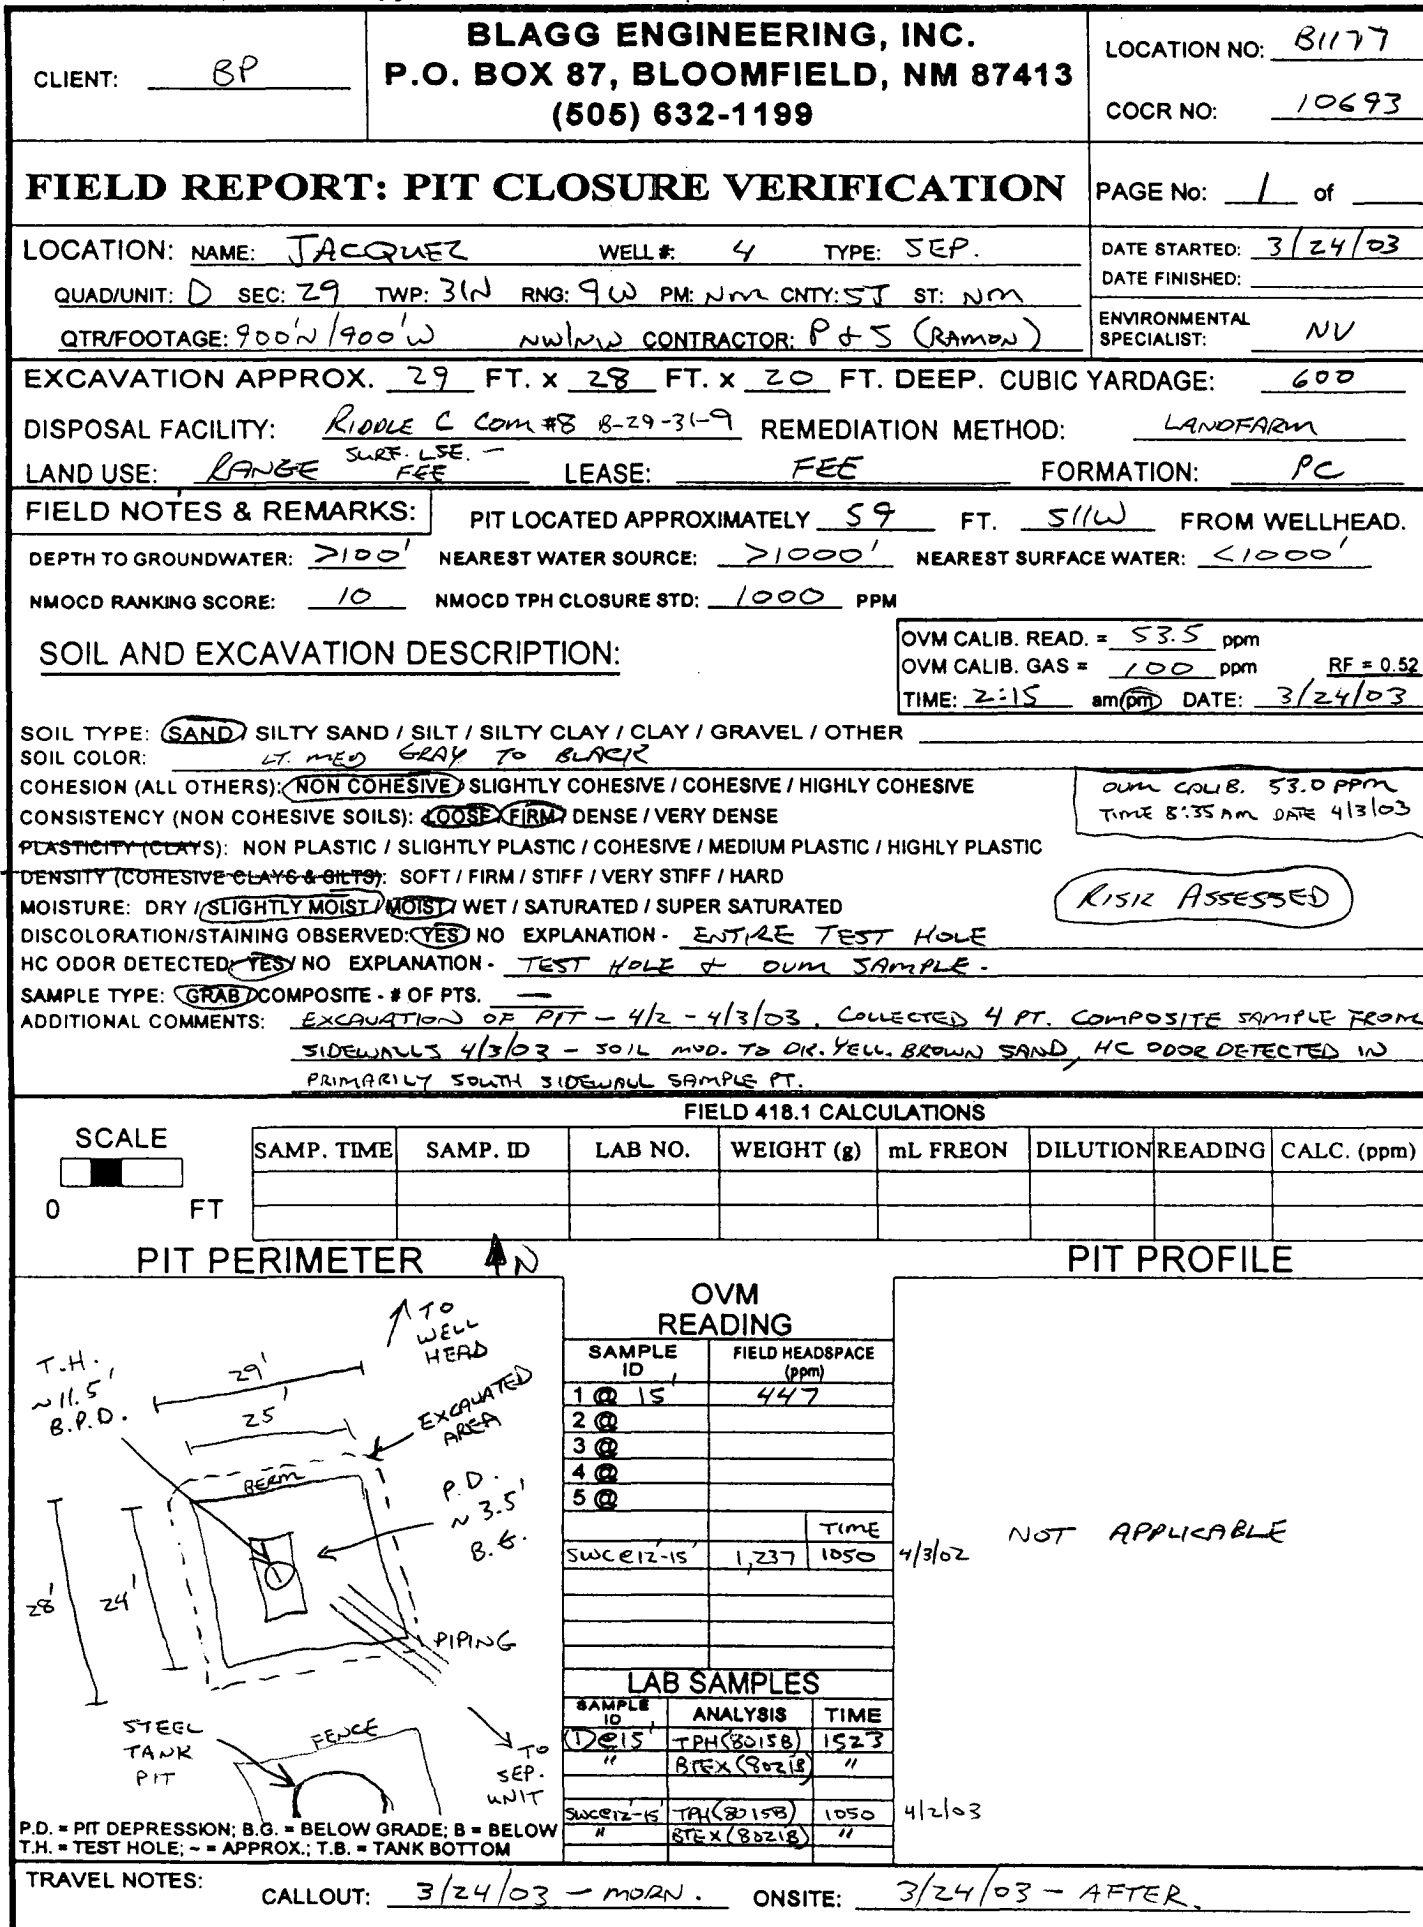 BLAGG ENGINEERING, INC.
P.O. BOX 87, BLOOMFIELD, NM 87413
(505) 632-1199
CLIENT: BP
LOCATION NO: B1177
COCR NO: 10693
FIELD REPORT: PIT CLOSURE VERIFICATION
PAGE No: 1 of
LOCATION: NAME: JACQUEZ WELL #: 4 TYPE: SEP.
QUAD/UNIT: D SEC: 29 TWP: 31N RNG: 9W PM: NM CNTY: SJ ST: NM
QTR/FOOTAGE: 900'N/900'W NW/NW CONTRACTOR: P & S (RAMON)
DATE STARTED: 3/24/03
DATE FINISHED:
ENVIRONMENTAL SPECIALIST: NV
EXCAVATION APPROX. 29 FT. x 28 FT. x 20 FT. DEEP. CUBIC YARDAGE: 600
DISPOSAL FACILITY: RIDDLE C COM #8 B-29-31-9 REMEDIATION METHOD: LANDFARM
LAND USE: RANGE SURF. LSE. - FEE LEASE: FEE FORMATION: PC
FIELD NOTES & REMARKS: PIT LOCATED APPROXIMATELY 59 FT. S11W FROM WELLHEAD.
DEPTH TO GROUNDWATER: >100' NEAREST WATER SOURCE: >1000' NEAREST SURFACE WATER: <1000'
NMOCD RANKING SCORE: 10 NMOCD TPH CLOSURE STD: 1000 PPM
SOIL AND EXCAVATION DESCRIPTION:
OVM CALIB. READ. = 53.5 ppm
OVM CALIB. GAS = 100 ppm RF = 0.52
TIME: 2:15 am/pm DATE: 3/24/03
SOIL TYPE: SAND / SILTY SAND / SILT / SILTY CLAY / CLAY / GRAVEL / OTHER
SOIL COLOR: LT. MED GRAY TO BLACK
COHESION (ALL OTHERS): NON COHESIVE / SLIGHTLY COHESIVE / COHESIVE / HIGHLY COHESIVE
CONSISTENCY (NON COHESIVE SOILS): LOOSE / FIRM / DENSE / VERY DENSE
PLASTICITY (CLAYS): NON PLASTIC / SLIGHTLY PLASTIC / COHESIVE / MEDIUM PLASTIC / HIGHLY PLASTIC
DENSITY (COHESIVE CLAYS & SILTS): SOFT / FIRM / STIFF / VERY STIFF / HARD
MOISTURE: DRY / SLIGHTLY MOIST / MOIST / WET / SATURATED / SUPER SATURATED
DISCOLORATION/STAINING OBSERVED: YES / NO EXPLANATION - ENTIRE TEST HOLE
HC ODOR DETECTED: YES / NO EXPLANATION - TEST HOLE & OVM SAMPLE.
SAMPLE TYPE: GRAB / COMPOSITE - # OF PTS. —
OVM CALIB. 53.0 PPM
TIME 8:35 AM DATE 4/3/03
RISK ASSESSED
ADDITIONAL COMMENTS: EXCAVATION OF PIT - 4/2 - 4/3/03. COLLECTED 4 PT. COMPOSITE SAMPLE FROM
SIDEWALLS 4/3/03 - SOIL MOD. TO DK. YELL. BROWN SAND, HC ODOR DETECTED IN
PRIMARILY SOUTH SIDEWALL SAMPLE PT.
FIELD 418.1 CALCULATIONS
SCALE
0 FT
SAMP. TIME SAMP. ID LAB NO. WEIGHT (g) mL FREON DILUTION READING CALC. (ppm)
PIT PERIMETER N
PIT PROFILE
TO WELL HEAD
T.H. ~11.5' B.P.D.
29'
25'
EXCAVATED AREA
BERM
P.D. ~3.5' B.G.
28'
24'
PIPING
STEEL TANK PIT
FENCE
TO SEP. UNIT
P.D. = PIT DEPRESSION; B.G. = BELOW GRADE; B = BELOW
T.H. = TEST HOLE; ~ = APPROX.; T.B. = TANK BOTTOM
OVM READING
SAMPLE ID FIELD HEADSPACE (ppm)
1 @ 15' 447
2 @
3 @
4 @
5 @
TIME
SWC@12'-15' 1,237 1050 4/3/02
LAB SAMPLES
SAMPLE ID ANALYSIS TIME
(1)@15' TPH(8015B) 1523
" BTEX(8021B) "
SWC@12'-15' TPH(8015B) 1050 4/2/03
" BTEX(8021B) "
NOT APPLICABLE
TRAVEL NOTES: CALLOUT: 3/24/03 - MORN. ONSITE: 3/24/03 - AFTER.